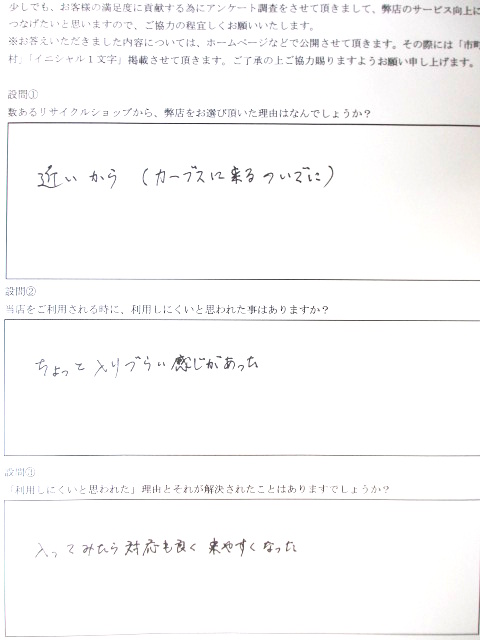 少しでも、お客様の満足度に貢献する為にアンケート調査をさせて頂きまして、弊店のサービス向上に
つなげたいと思いますので、ご協力の程宜しくお願いいたします。
※お答えいただきました内容については、ホームページなどで公開させて頂きます。その際には「市町
村」「イニシャル１文字」掲載させて頂きます。ご了承の上ご協力賜りますようお願い申し上げます。
設問①
数あるリサイクルショップから、弊店をお選び頂いた理由はなんでしょうか？
近いから （カーブスに来るついでに）
設問②
当店をご利用される時に、利用しにくいと思われた事はありますか？
ちょっと入りづらい感じがあった
設問③
「利用しにくいと思われた」理由とそれが解決されたことはありますでしょうか？
入ってみたら対応も良く来やすくなった